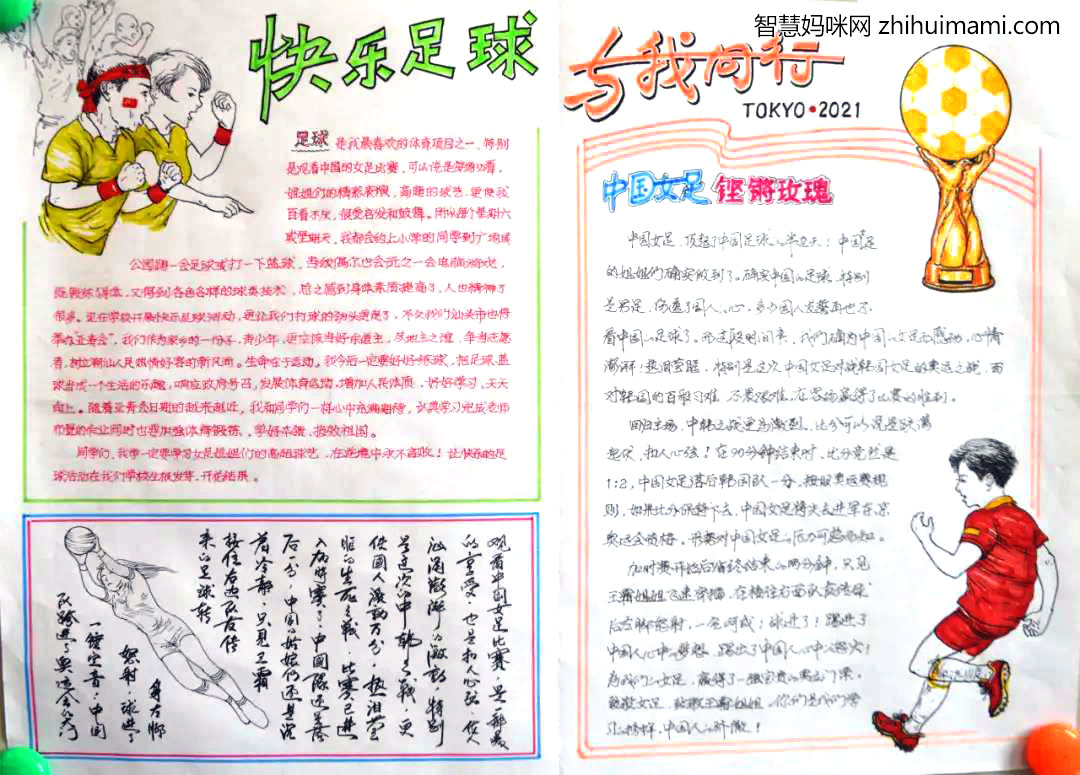 智慧妈咪网 zhihuimami.com
快乐足球
与我同行
TOKYO•2021
足球 是我最喜欢的体育项目之一，特别
是观看中国的女足比赛，可以说是每场必看，
姐姐们的精彩表现，高超的球艺，更使我
百看不厌，很受启发和鼓舞。所以每个星期六
或星期天，我都会约上小学的同学到广场或
公园踢一会足球或打一下篮球，当然偶尔也会玩之一会电脑游戏，
既锻炼身体，又得到各色各样的球类技术，总之感到身体素质提高了，人也精神了
很多。现在学校开展快乐足球活动，更让我们打球的劲头更足了，不久我们汕头市也将
举办“亚青会”，我们作为家乡的一份子，青少年，更应该当好东道主，尽地主之谊，争当志愿
者，树立潮汕人民热情好客的新风尚。生命在于运动，我今后一定要好好练球，把足球、篮
球当成一个生活的乐趣，响应政府号召，发展体育运动，增加人民体质，好好学习，天天
向上。随着亚青会日期的越来越近，我和同学们一样心中充满期待，认真学习完成老师
布置的作业同时也要加强体育锻炼，学好本领，报效祖国。
同学们，我带一定要学习女足姐姐们的高超球艺，在逆境中永不言败！让快乐的足
球活动在我们学校生根发芽，开花结果。
观看中国女足比赛，是一部最
的享受，也是扣人心弦，使人
汹涌澎湃的激动，特别
是这次中韩之战，更
使国人激动万分，热泪盈
眶的生死之战，比赛已进
入加时赛了，中国队还是落
后一分，中国的姑娘们还是沉
着冷静，只见王霜
接住右边队友传
来的足球转
身右脚
怒射，球进了
一锤定音，中国
队跨进了奥运会的大门
中国女足 铿锵玫瑰
中国女足，顶起了中国足球的半边天！中国足
的姐姐们确实做到了。确实中国的足球，特别
是男足，伤透了国人的心，多少国人发誓再也不
看中国的足球了。而这段时间来，我们确为中国的女足而感动，心情
澎湃！热泪盈眶，特别是这次中国女足对战韩国女足的奥运之战，面
对韩国的百般刁难，不畏艰难，在客场赢得了比赛的胜利。
回归主场，中韩之战更为激烈。比分可以说是跌荡
起伏，扣人心弦！在90分钟结束时，比分竟然是
1:2，中国女足落后韩国队一分，按照奥运赛规
则，如果比分保持下去，中国女足将失去进军东京
奥运会资格。形势对中国女足的压力可想而知。
加时赛开始后临终结束的两分钟，只见
王霜姐姐飞速穿插，在接住右面队友传球
后右脚怒射，一气呵成！球进了！踢进了
中国人心中的梦想，踢出了中国人心中的怒火！
为我们的女足，赢得了一张宝贵的奥运门票。
致敬女足，致敬王霜姐姐，你们是我们的学
习的榜样，中国人的骄傲！